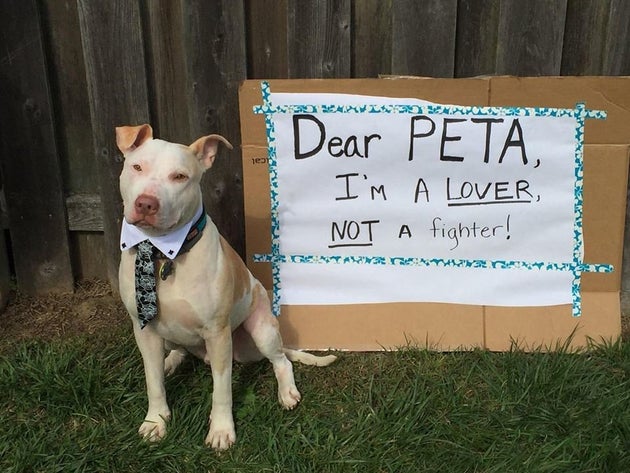 Dear PETA,
I'm A LOVER,
NOT A fighter!